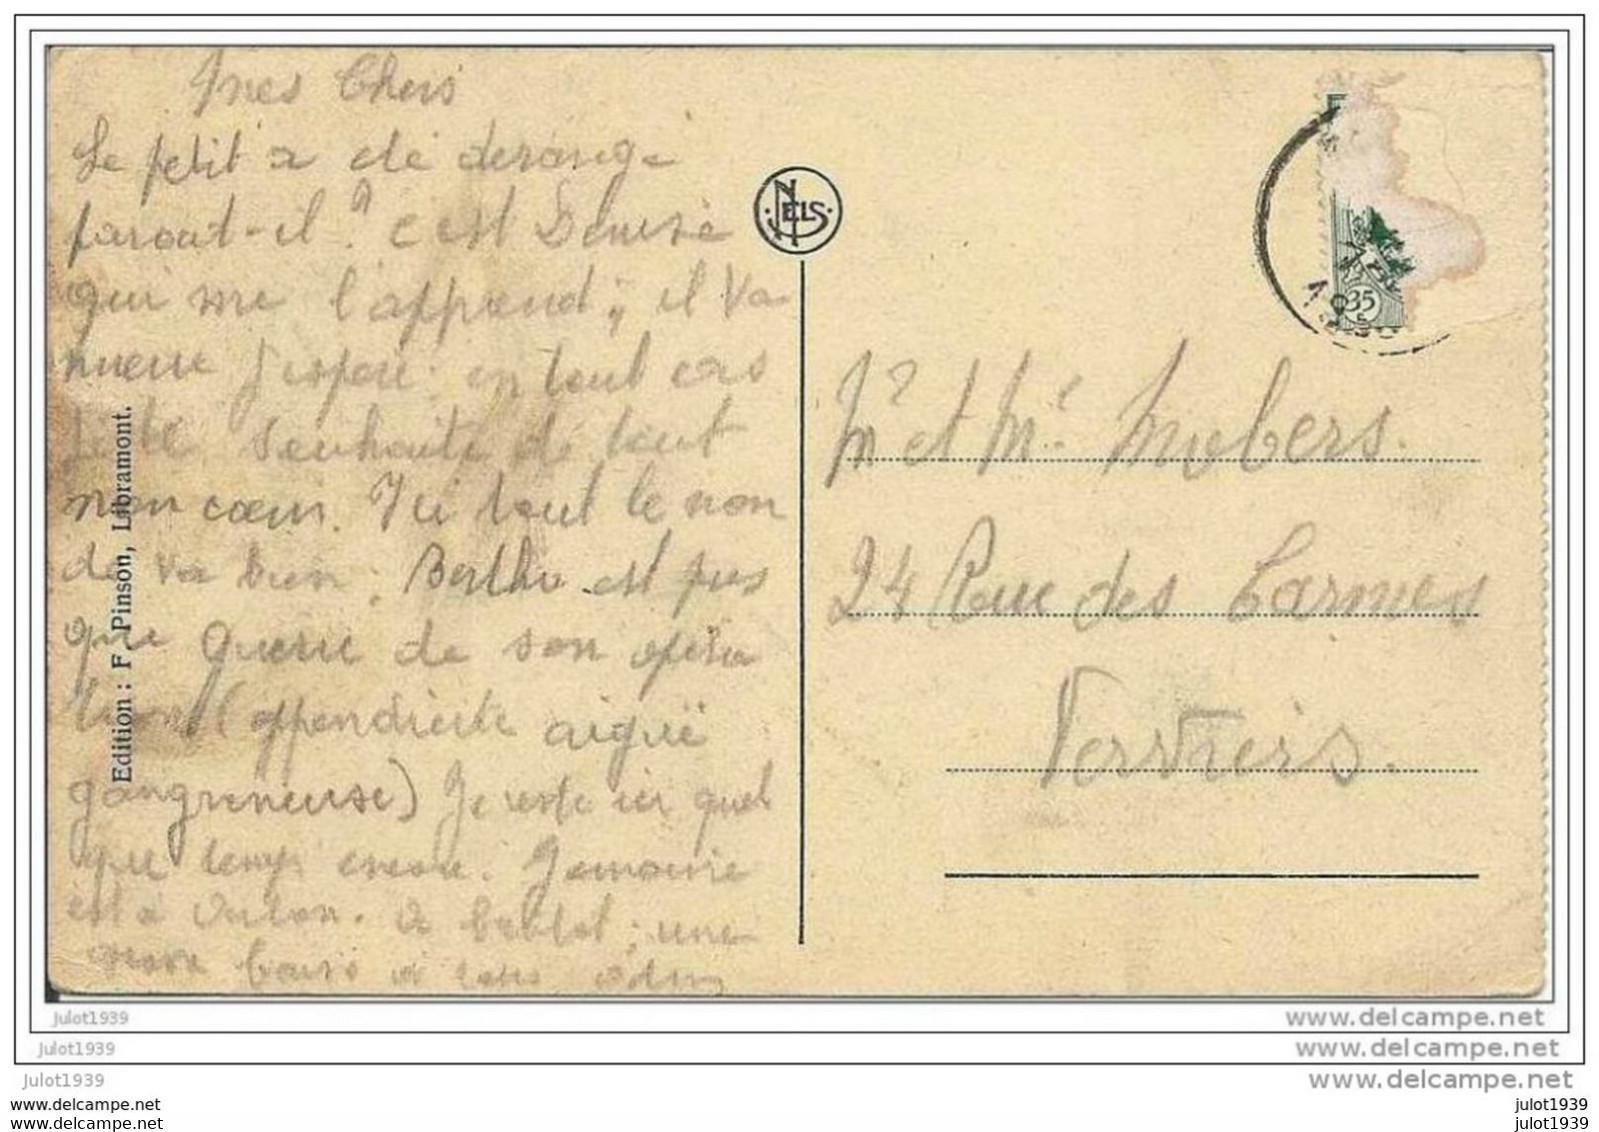 Mes Chers
Le petit a été dérangé
parait-il? c'est Denise
qui me l'apprend; il va
mieux j'espère en tout cas
je le souhaite de tout
mon coeur. Ici tout le mon
de va bien; Berthe est pres
que guerie de son opéra
tion (appendicite aiguë
gangreneuse) Je reste ici quel
que temps encore.
est à Arlon. A bientôt; une
gros à tous
Edition : F. Pinson, Libramont.
NELS
35
Mr et Me
24 Rue des Carmes
Verviers.
julot1939
julot1939
julot1939
www.delcampe.net
www.delcampe.net
www.delcampe.net
www.delcampe.net
www.delcampe.net
julot1939
julot1939